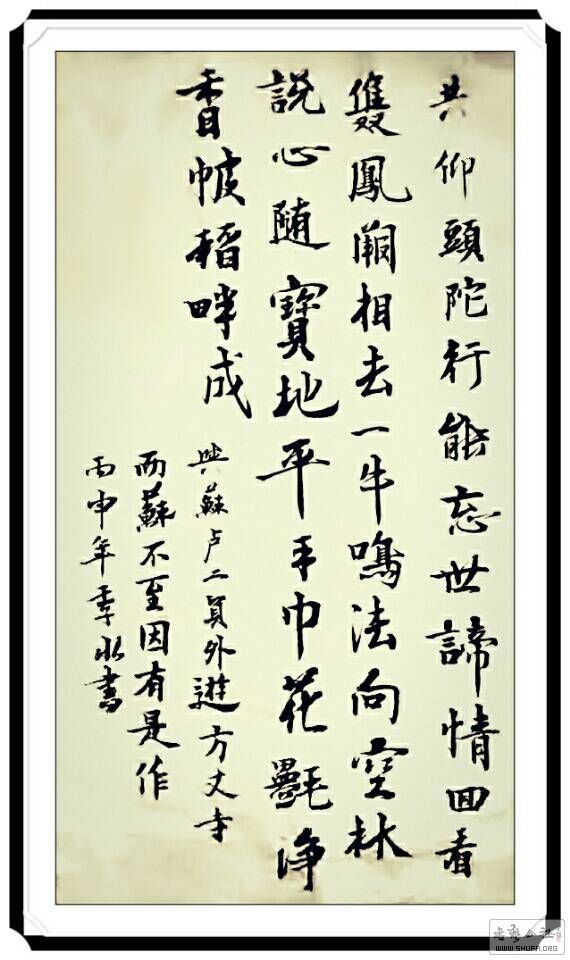 共仰頭陀行能忘世諦情回看
雙鳳闕相去一牛鳴法向空林
説心随寶地平手巾花氎浄
香帔稻畔成
與蘇卢二員外遊方丈寺
而蘇不至因有是作
丙申年季水書
WWW.SHUFA.ORG